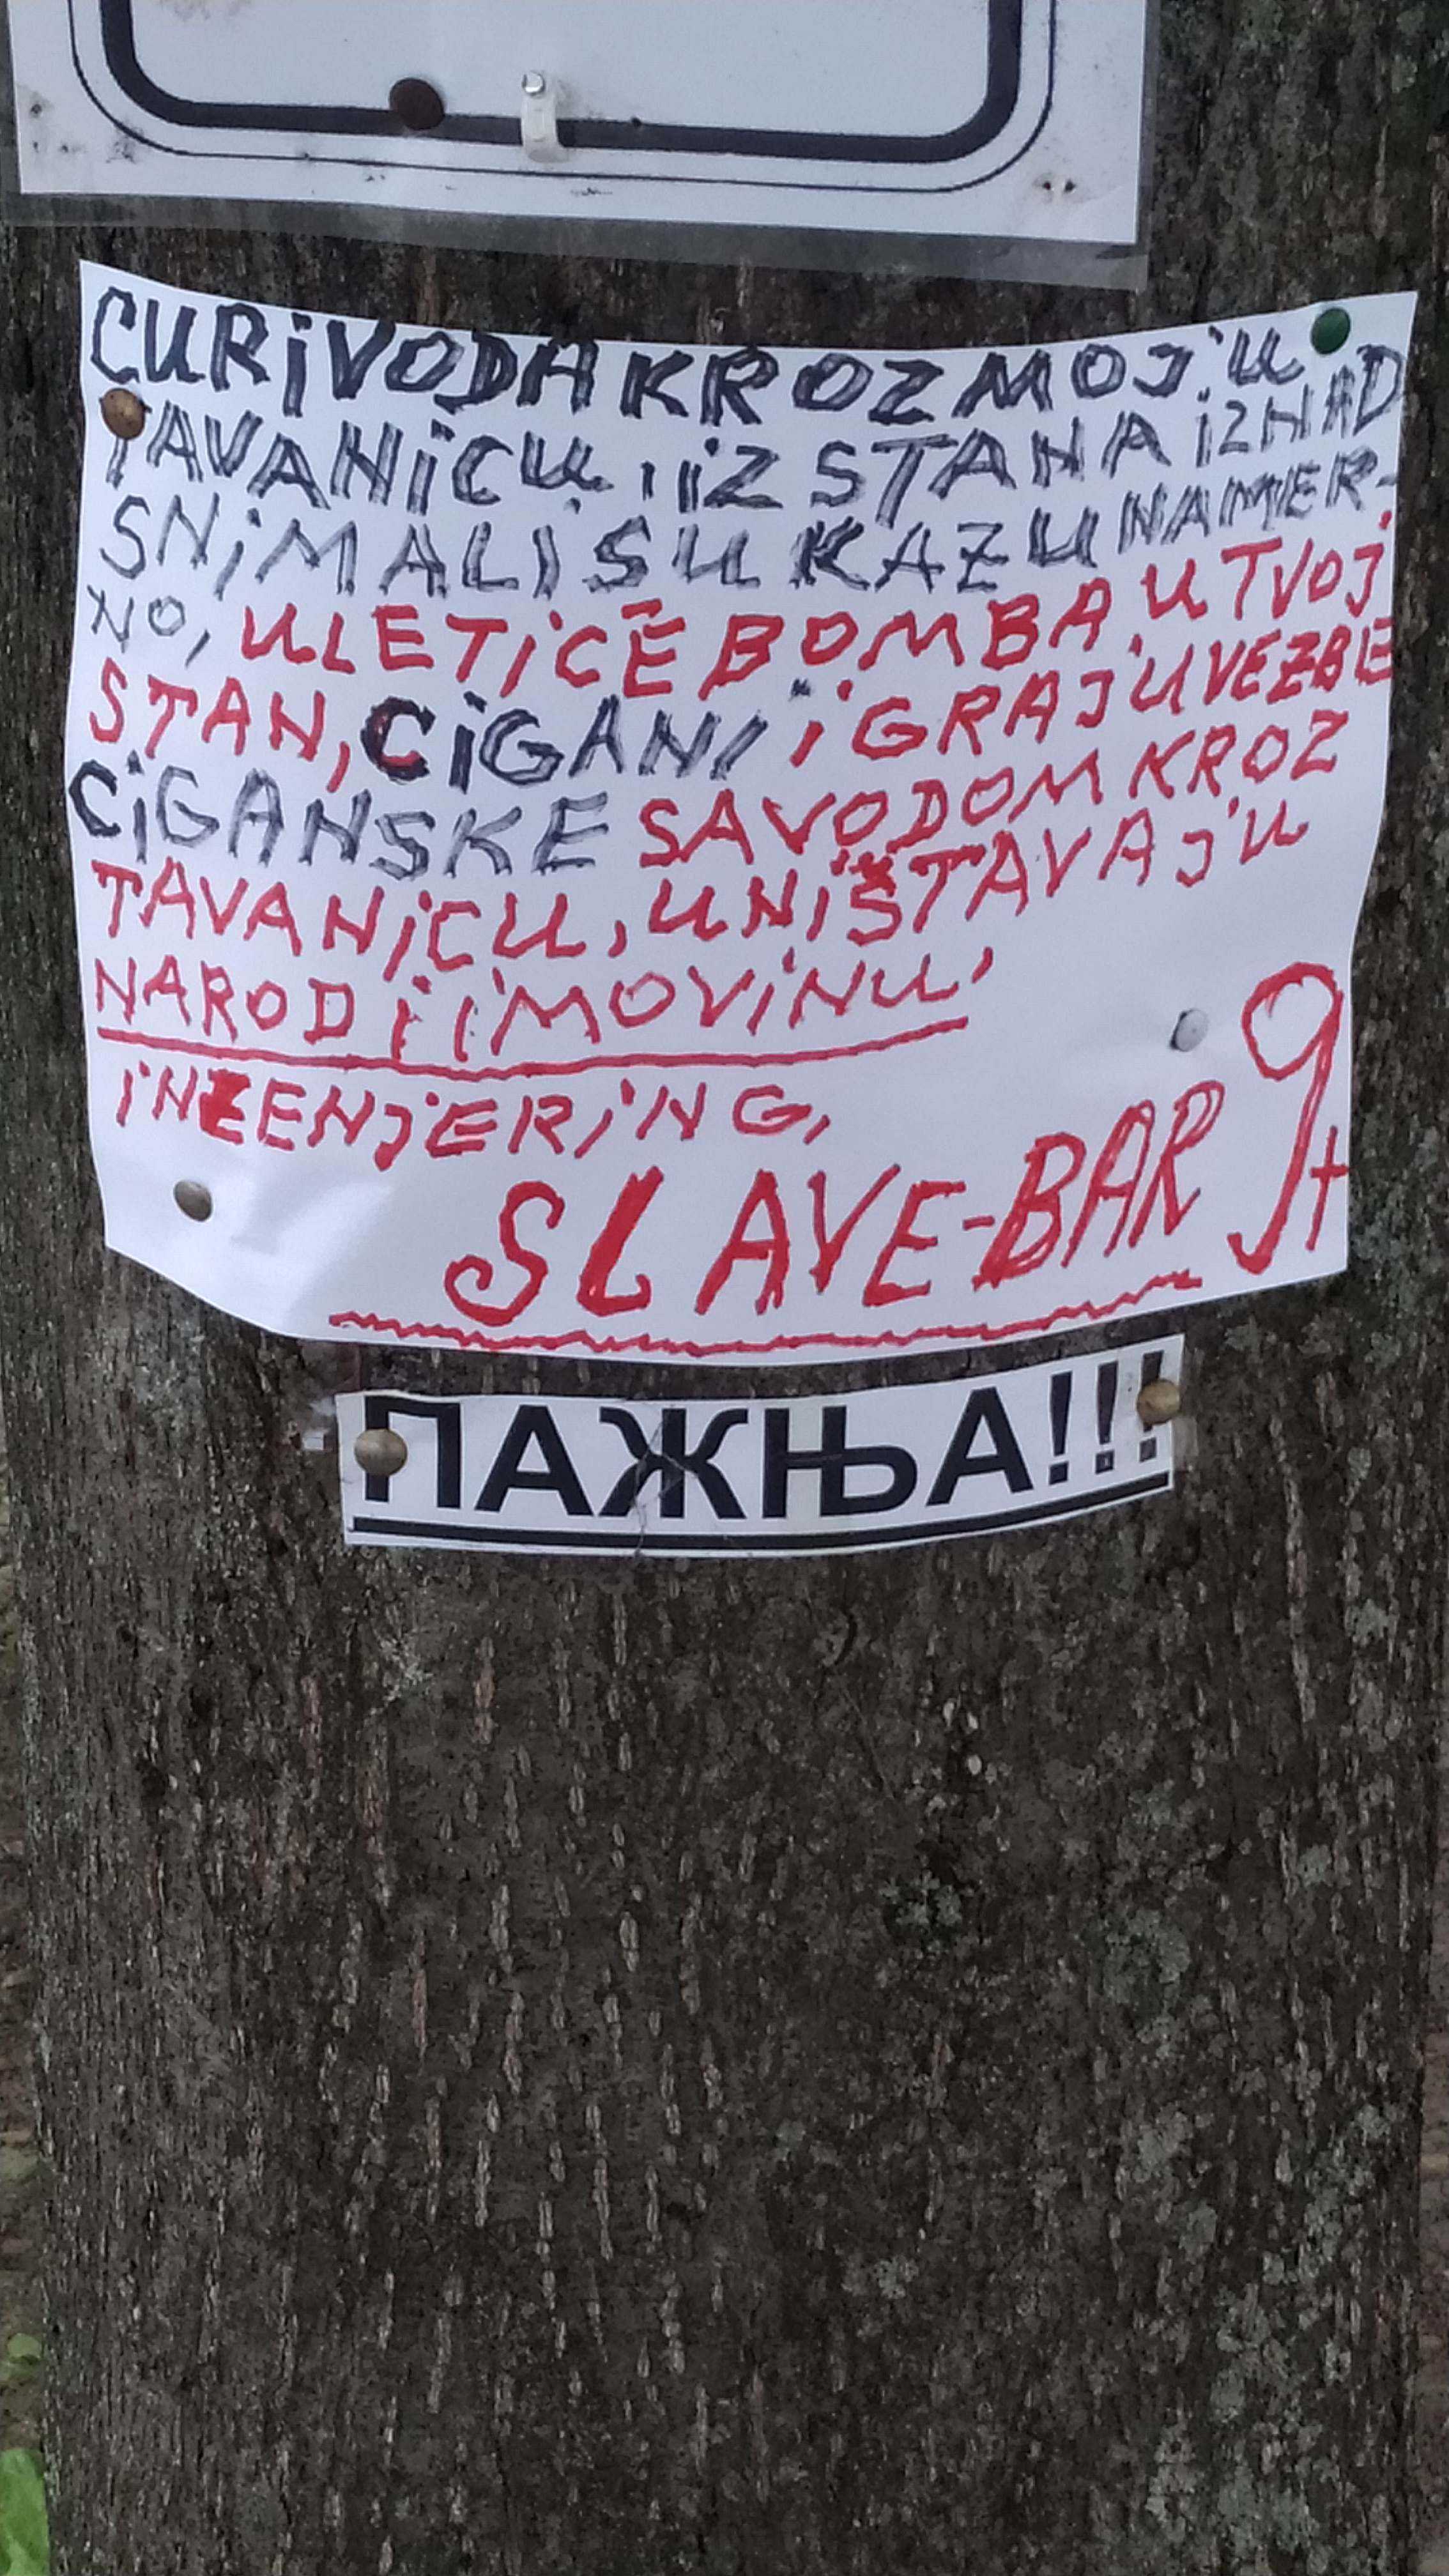 CURI VODA KROZ MOJU
TAVANICU, IZ STANA IZNAD
SNIMALI SU KAZU NAMER-
NO, ULETIĆE BOMBA U TVOJ
STAN, CIGANI IGRAJU VEZBE
CIGANSKE SA VODOM KROZ
TAVANICU, UNIŠTAVAJU
NAROD I IMOVINU,
INZENJERING,
SLAVE-BAR 9+
ПАЖЊА!!!